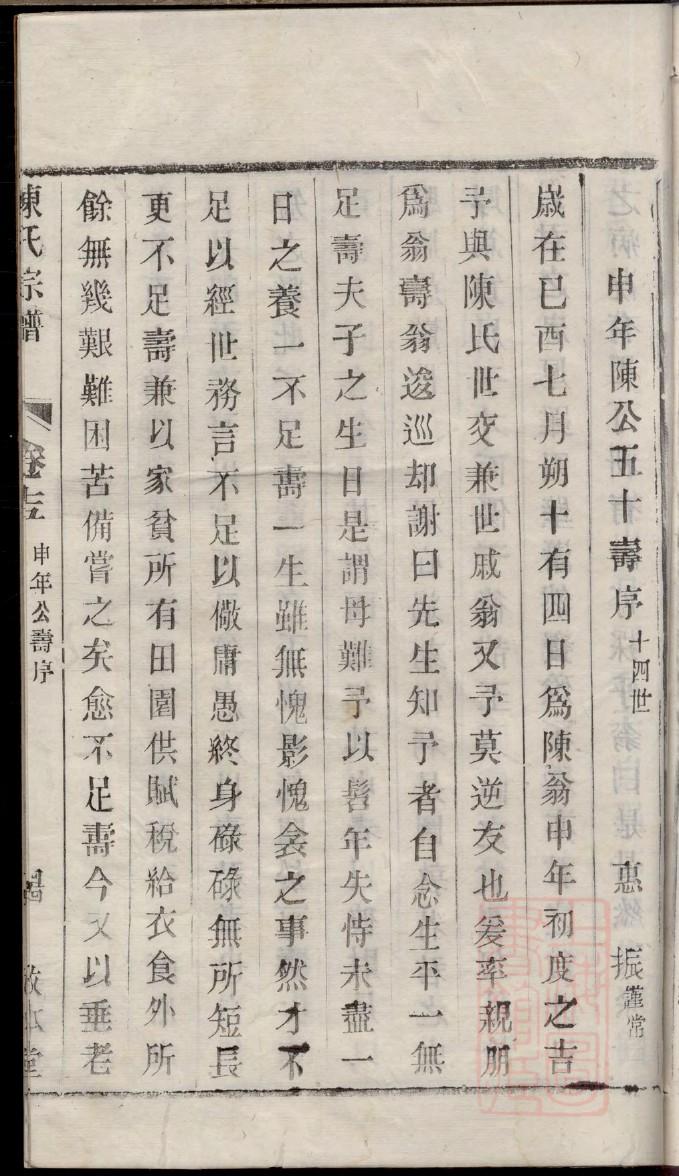 申年陳公五十壽序十四世 惠振謹常
歲在已酉七月朔十有四日爲陳翁申年初度之吉
予與陳氏世交兼世戚翁又予莫逆友也爰率親朋
爲翁壽翁逡巡却謝曰先生知予者自念生平一無
足壽夫子之生日是謂母難予以髫年失恃未盡一
日之養一不足壽一生雖無愧影愧衾之事然才不
足以經世務言不足以儆庸愚終身碌碌無所短長
更不足壽兼以家貧所有田園供賦稅給衣食外所
餘無幾艱難困苦備嘗之矣愈不足壽今又以垂老
陳氏宗譜 卷 申年公壽序 敬本堂